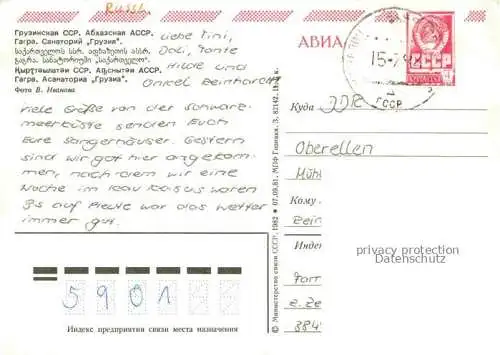 Russl.
Грузинская ССР. Абхазская АССР.
Гагра. Санаторий „Грузия".
საქართველოს სსრ. აფხაზეთის ასსრ.
გაგრა. სანატორიუმი „საქართველო".
Қырҭтәылатәи ССР. Аԥснытәи АССР.
Гагра. Асанаториа „Грузиа".
Фото В. Иванова
Liebe Tini,
Dali, Tante
Hilde und
Onkel Beinhardt!
Viele Grüße von der Schwarz-
meerküste senden Euch
Eure Sangerhäuser. Gestern
sind wir gut hier angekom-
men, nach dem wir eine
Woche im Kaukasus waren
Bis auf Heute war das Wetter
immer gut.
АВИА
15-7
ГССР
ПОЧТА
СССР
4
Куда DDR
Oberellen
Кому
Индек
privacy protection
Datenschutz
5901
Индекс предприятия связи места назначения
© Министерство связи СССР, 1982 * 07.09.81. МПФ Гознака. З. 82142. Ц. 5 к.